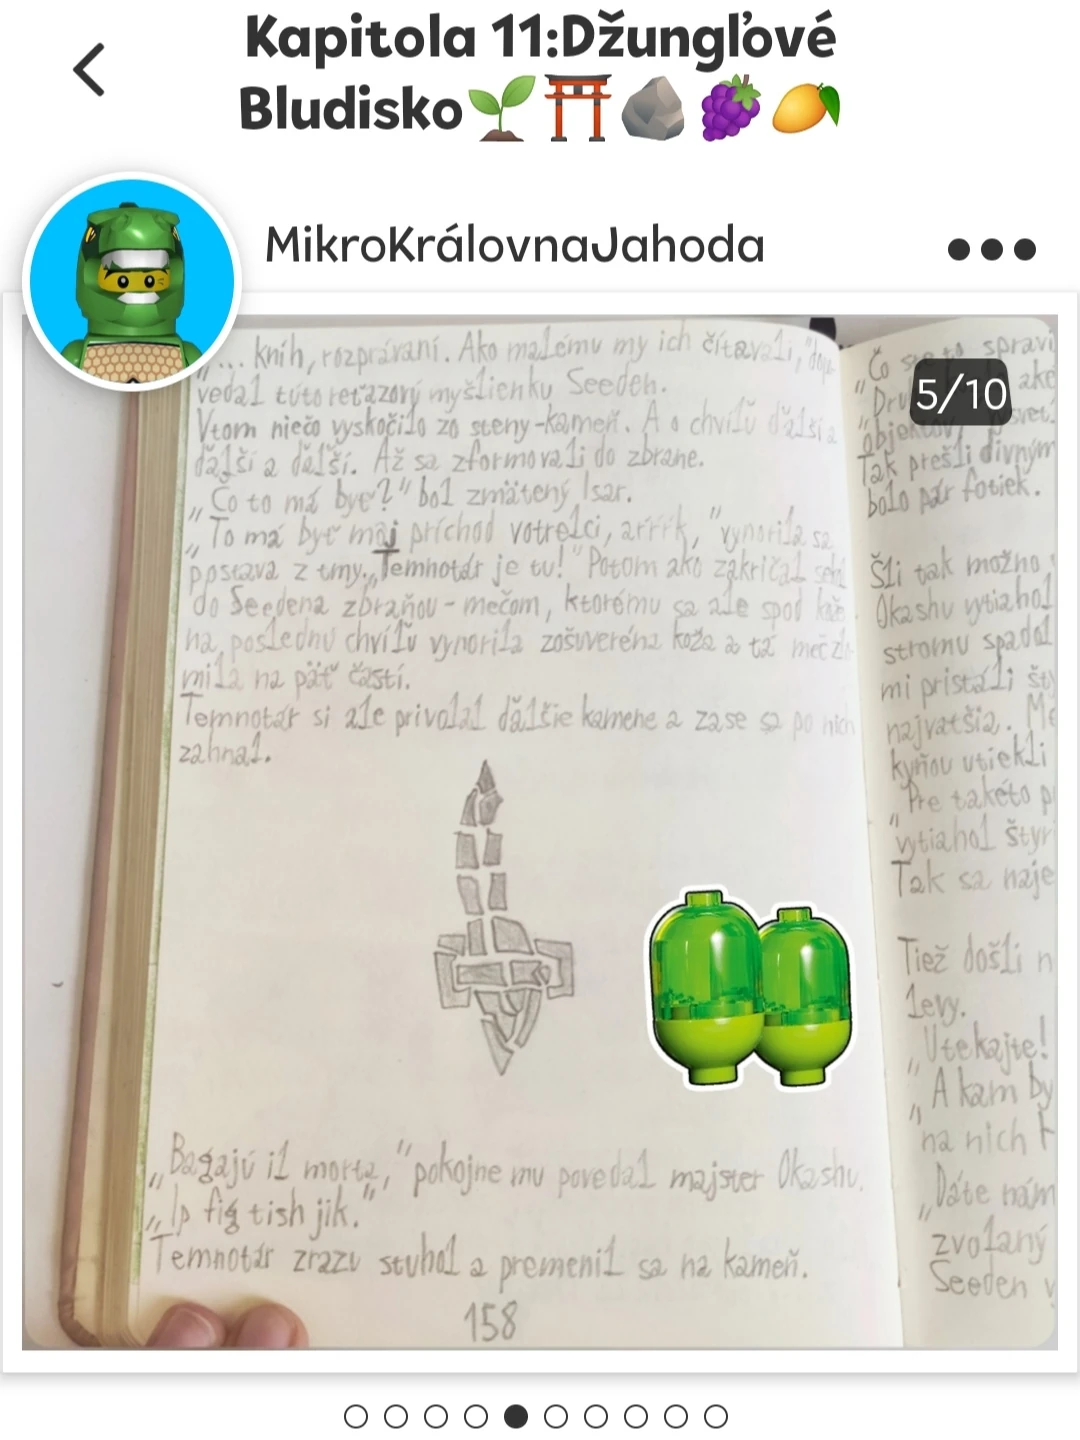 Kapitola 11:Džungľové
Bludisko
MikroKrálovnaJahoda
5/10
„... kníh, rozprávaní. Ako malému my ich čítavali,"
vedal túto reťazový myšlienku Seeden.
Vtom niečo vyskočilo zo steny-kameň. A o chvíľu ďalší a
ďalší a ďalší. Až sa zformovali do zbrane.
„Čo to má byť?" bol zmätený Isar.
„To má byť môj príchod votrelci, arrrk, "vynorila sa
postava z tmy.„Temnotár je tu!" Potom ako zakričal sekl
do Seedena zbraňou - mečom, ktorému sa ale spod
na poslednú chvíľu vynorila zošuverená koža a tá meč zlo-
mila na päť častí.
Temnotár si ale privolal ďalšie kamene a zase sa po nich
zahnal.
„Bagajú il morta," pokojne mu povedal majster Okashu.
„Ip fig tish jik."
Temnotár zrazu stuhol a premenil sa na kameň.
158
„Čo ste to spravi
„Dru
ake
„objektov
svet.
Tak prešli divným
bolo pár fotiek.
Šli tak možno
Okashu vytiahol
stromu spadol
mi pristáli šty
najvatšia. Me
kyňou utiekli
„Pre takéto p
vytiahol štyr
Tak sa naje
Tiež došli n
levy.
„Utekajte!
„A kam by
na nich
„Dáte nám
zvolaný
Seeden v